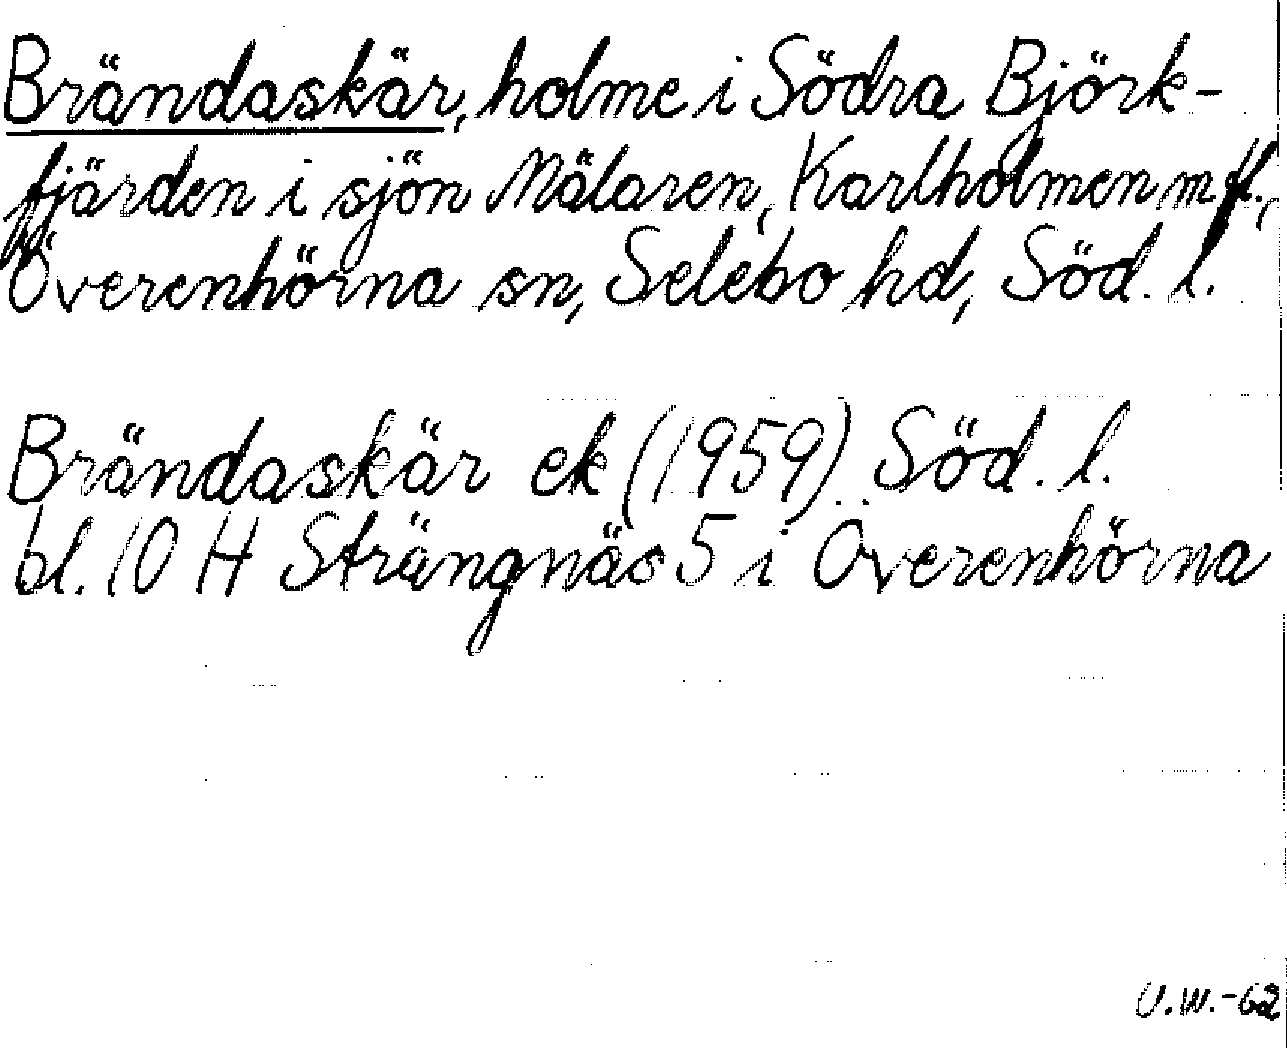 Brändaskär, holme i Södra Björk-
fjärden i sjön Mälaren, Karlholmen m.fl.,
Överenhörna sn, Selebo hd, Söd. l.
Brändaskär ek (1959) Söd. l.
bl. 10 H Strängnäs 5 i Överenhörna
U.W.-62